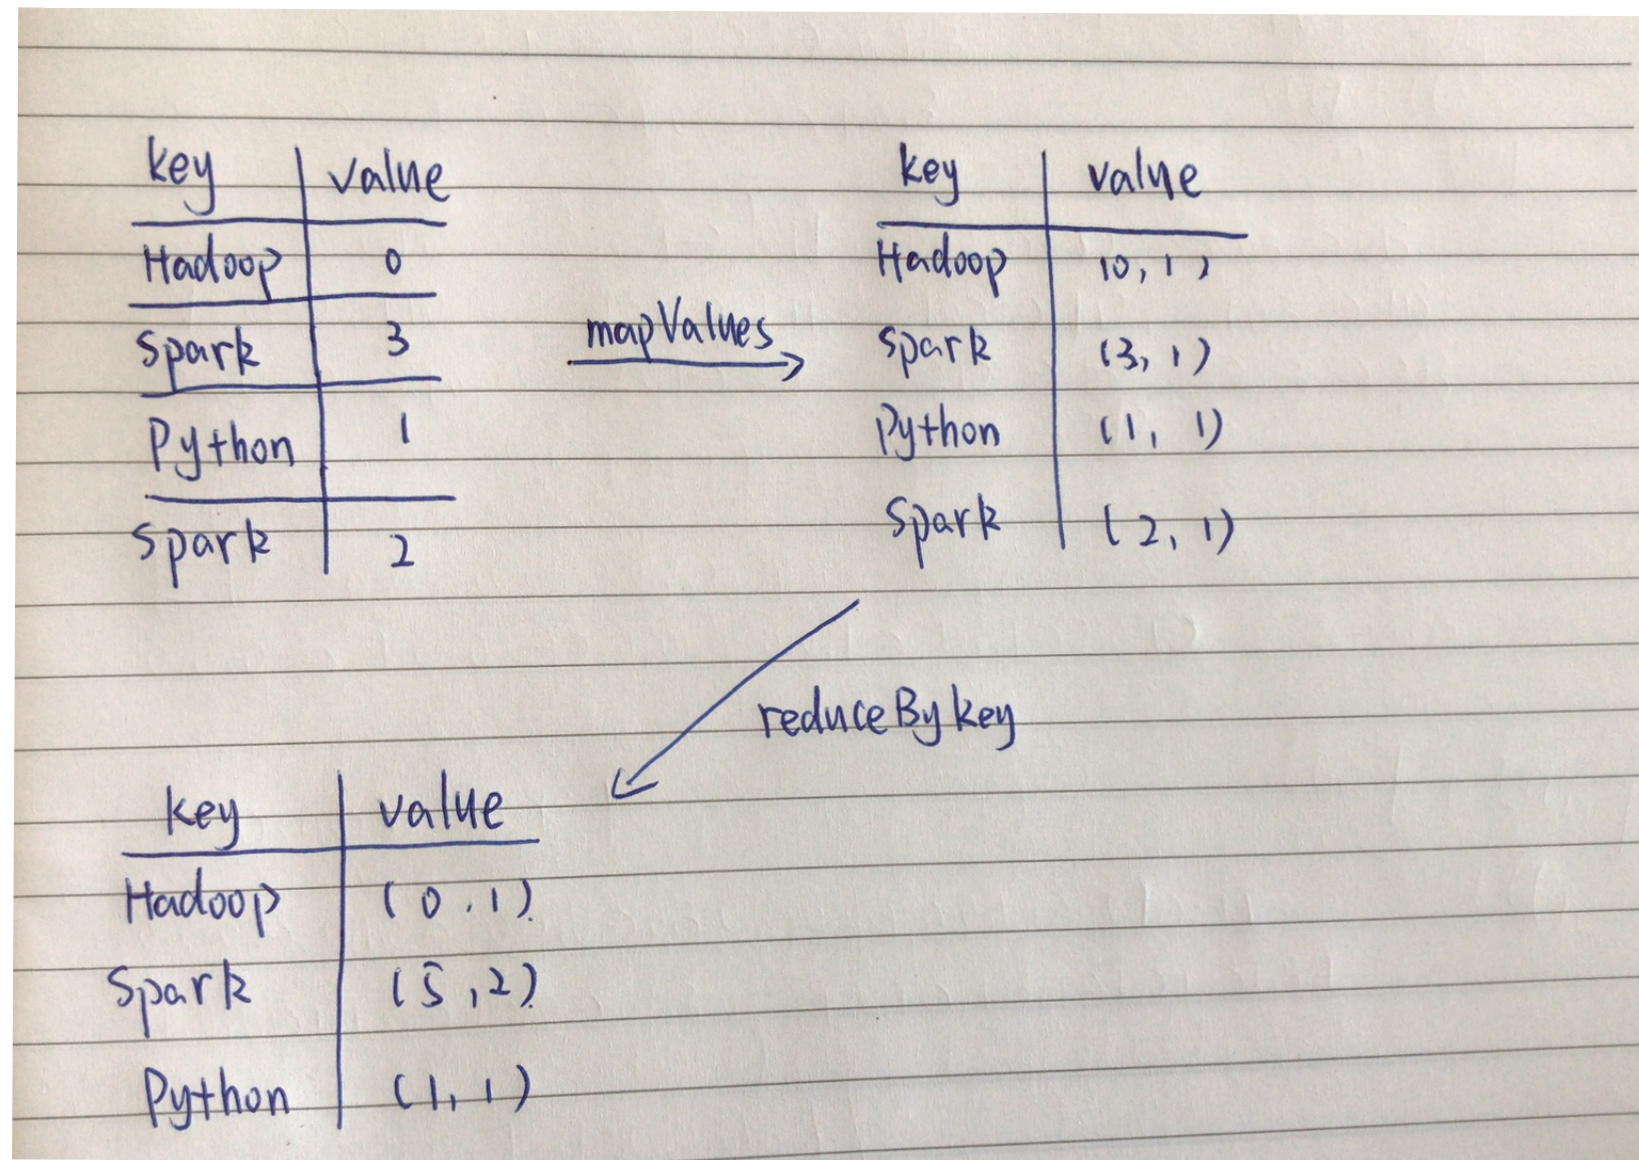 key value
Hadoop 0
Spark 3
Python 1
Spark 2
mapValues
key value
Hadoop (0, 1)
Spark (3, 1)
Python (1, 1)
Spark (2, 1)
reduceByKey
key value
Hadoop (0.1)
Spark (5,2)
Python (1, 1)